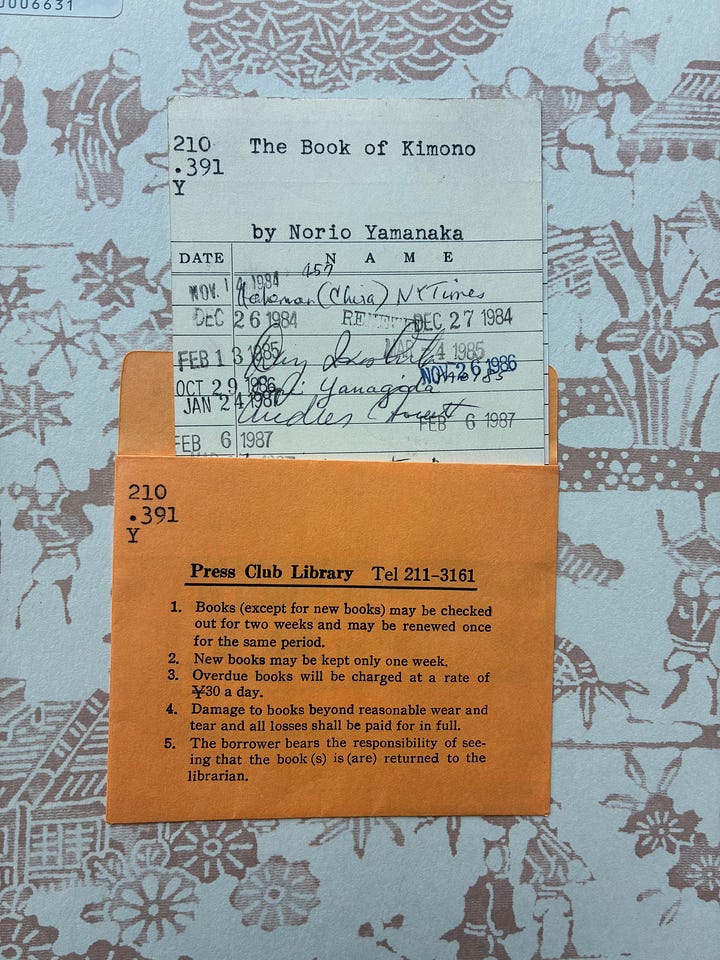 0006631
210 The Book of Kimono
.391
Y
by Norio Yamanaka
DATE NAME
457
NOV. 14 1984 (Chira) NYTimes
DEC 26 1984 DEC 27 1984
FEB 13 1985 MAR 14 1985
OCT 29 1986 Yanagida NOV 26 1986
JAN 24 1987 FEB 6 1987
FEB 6 1987
210
.391
Y
Press Club Library Tel 211-3161
1. Books (except for new books) may be checked
out for two weeks and may be renewed once
for the same period.
2. New books may be kept only one week.
3. Overdue books will be charged at a rate of
¥30 a day.
4. Damage to books beyond reasonable wear and
tear and all losses shall be paid for in full.
5. The borrower bears the responsibility of see-
ing that the book (s) is (are) returned to the
librarian.